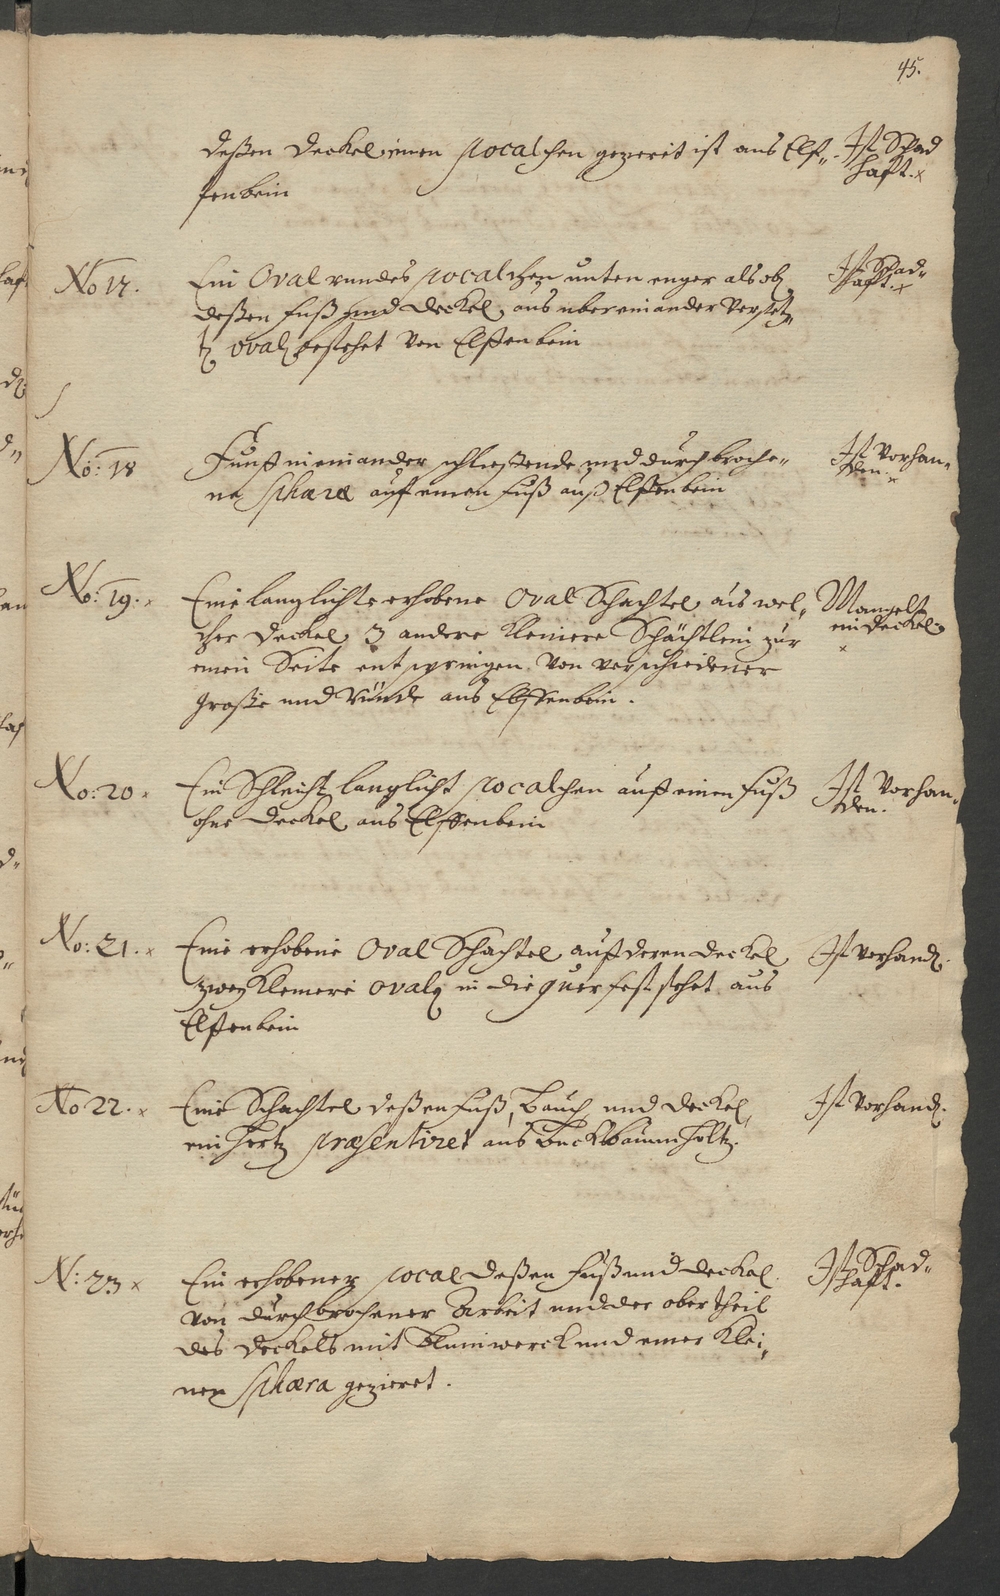 45.
deßen Deckel einen pocalchen gezieret ist aus Elf-
fenbein
Ist Schad
hafft. x
No 17.
Ein Oval rundes pocalchen unten enger als ob
deßen Fuß und Deckel, aus ubereinander versetz
oval bestehet von Elffenbein
Ist Schad-
hafft. x
No: 18
Funff in einander schließende und durchbroche-
ne Sphæræ auf einen Fuß auß Elffenbein
Ist Vorhan-
den. x
No: 19. x
Eine langlichte erhobene Oval Schachtel aus wel-
cher Deckel 3 andere kleinere Schächtlein zur
einen Seite entspringen von verschiedener
Große und Ründe aus Elffenbein.
Mangelt
ein Deckel
x
No: 20.
Ein Schlecht langlicht pocalchen auf einen Fuß
ohne Deckel aus Elffenbein
Ist Vorhan-
den.
No: 21. x
Eine erhobene Oval Schachtel auf deren Deckel
zwey kleinere oval in die quer fest stehet aus
Elffenbein
Ist vorhand.
No 22. x
Eine Schachtel deßen Fuß, Bauch und Deckel,
ein Hertz præsentiret aus Buchsbaumholtz.
Ist vorhand.
N: 23 x
Ein erhobener pocal deßen Fuß und Deckel
von durchbrochener Arbeit und der ober theil
des Deckels mit Blumwerck und einer Klei-
nen Sphæra gezieret.
Ist Schad-
hafft.